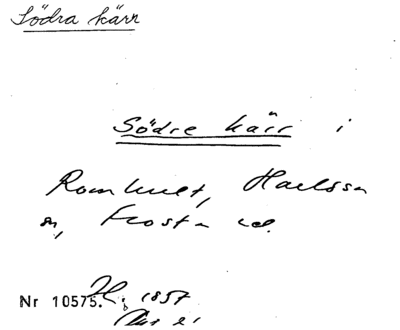 Södra kärr
Södre kärr i
Romhult, Harlösa
sn, Frosta hd.
Nr 10575. 1857